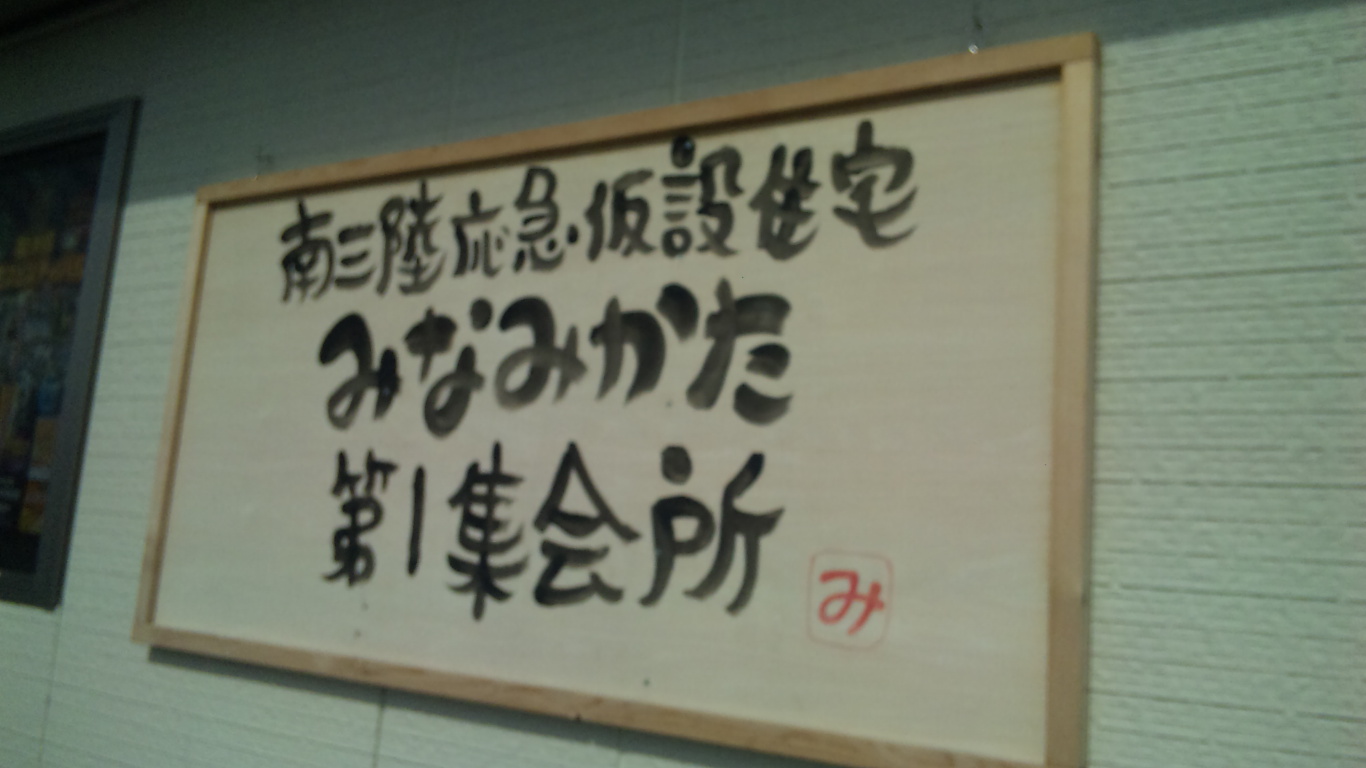 南三陸応急仮設住宅
みなみかた
第1集会所
み